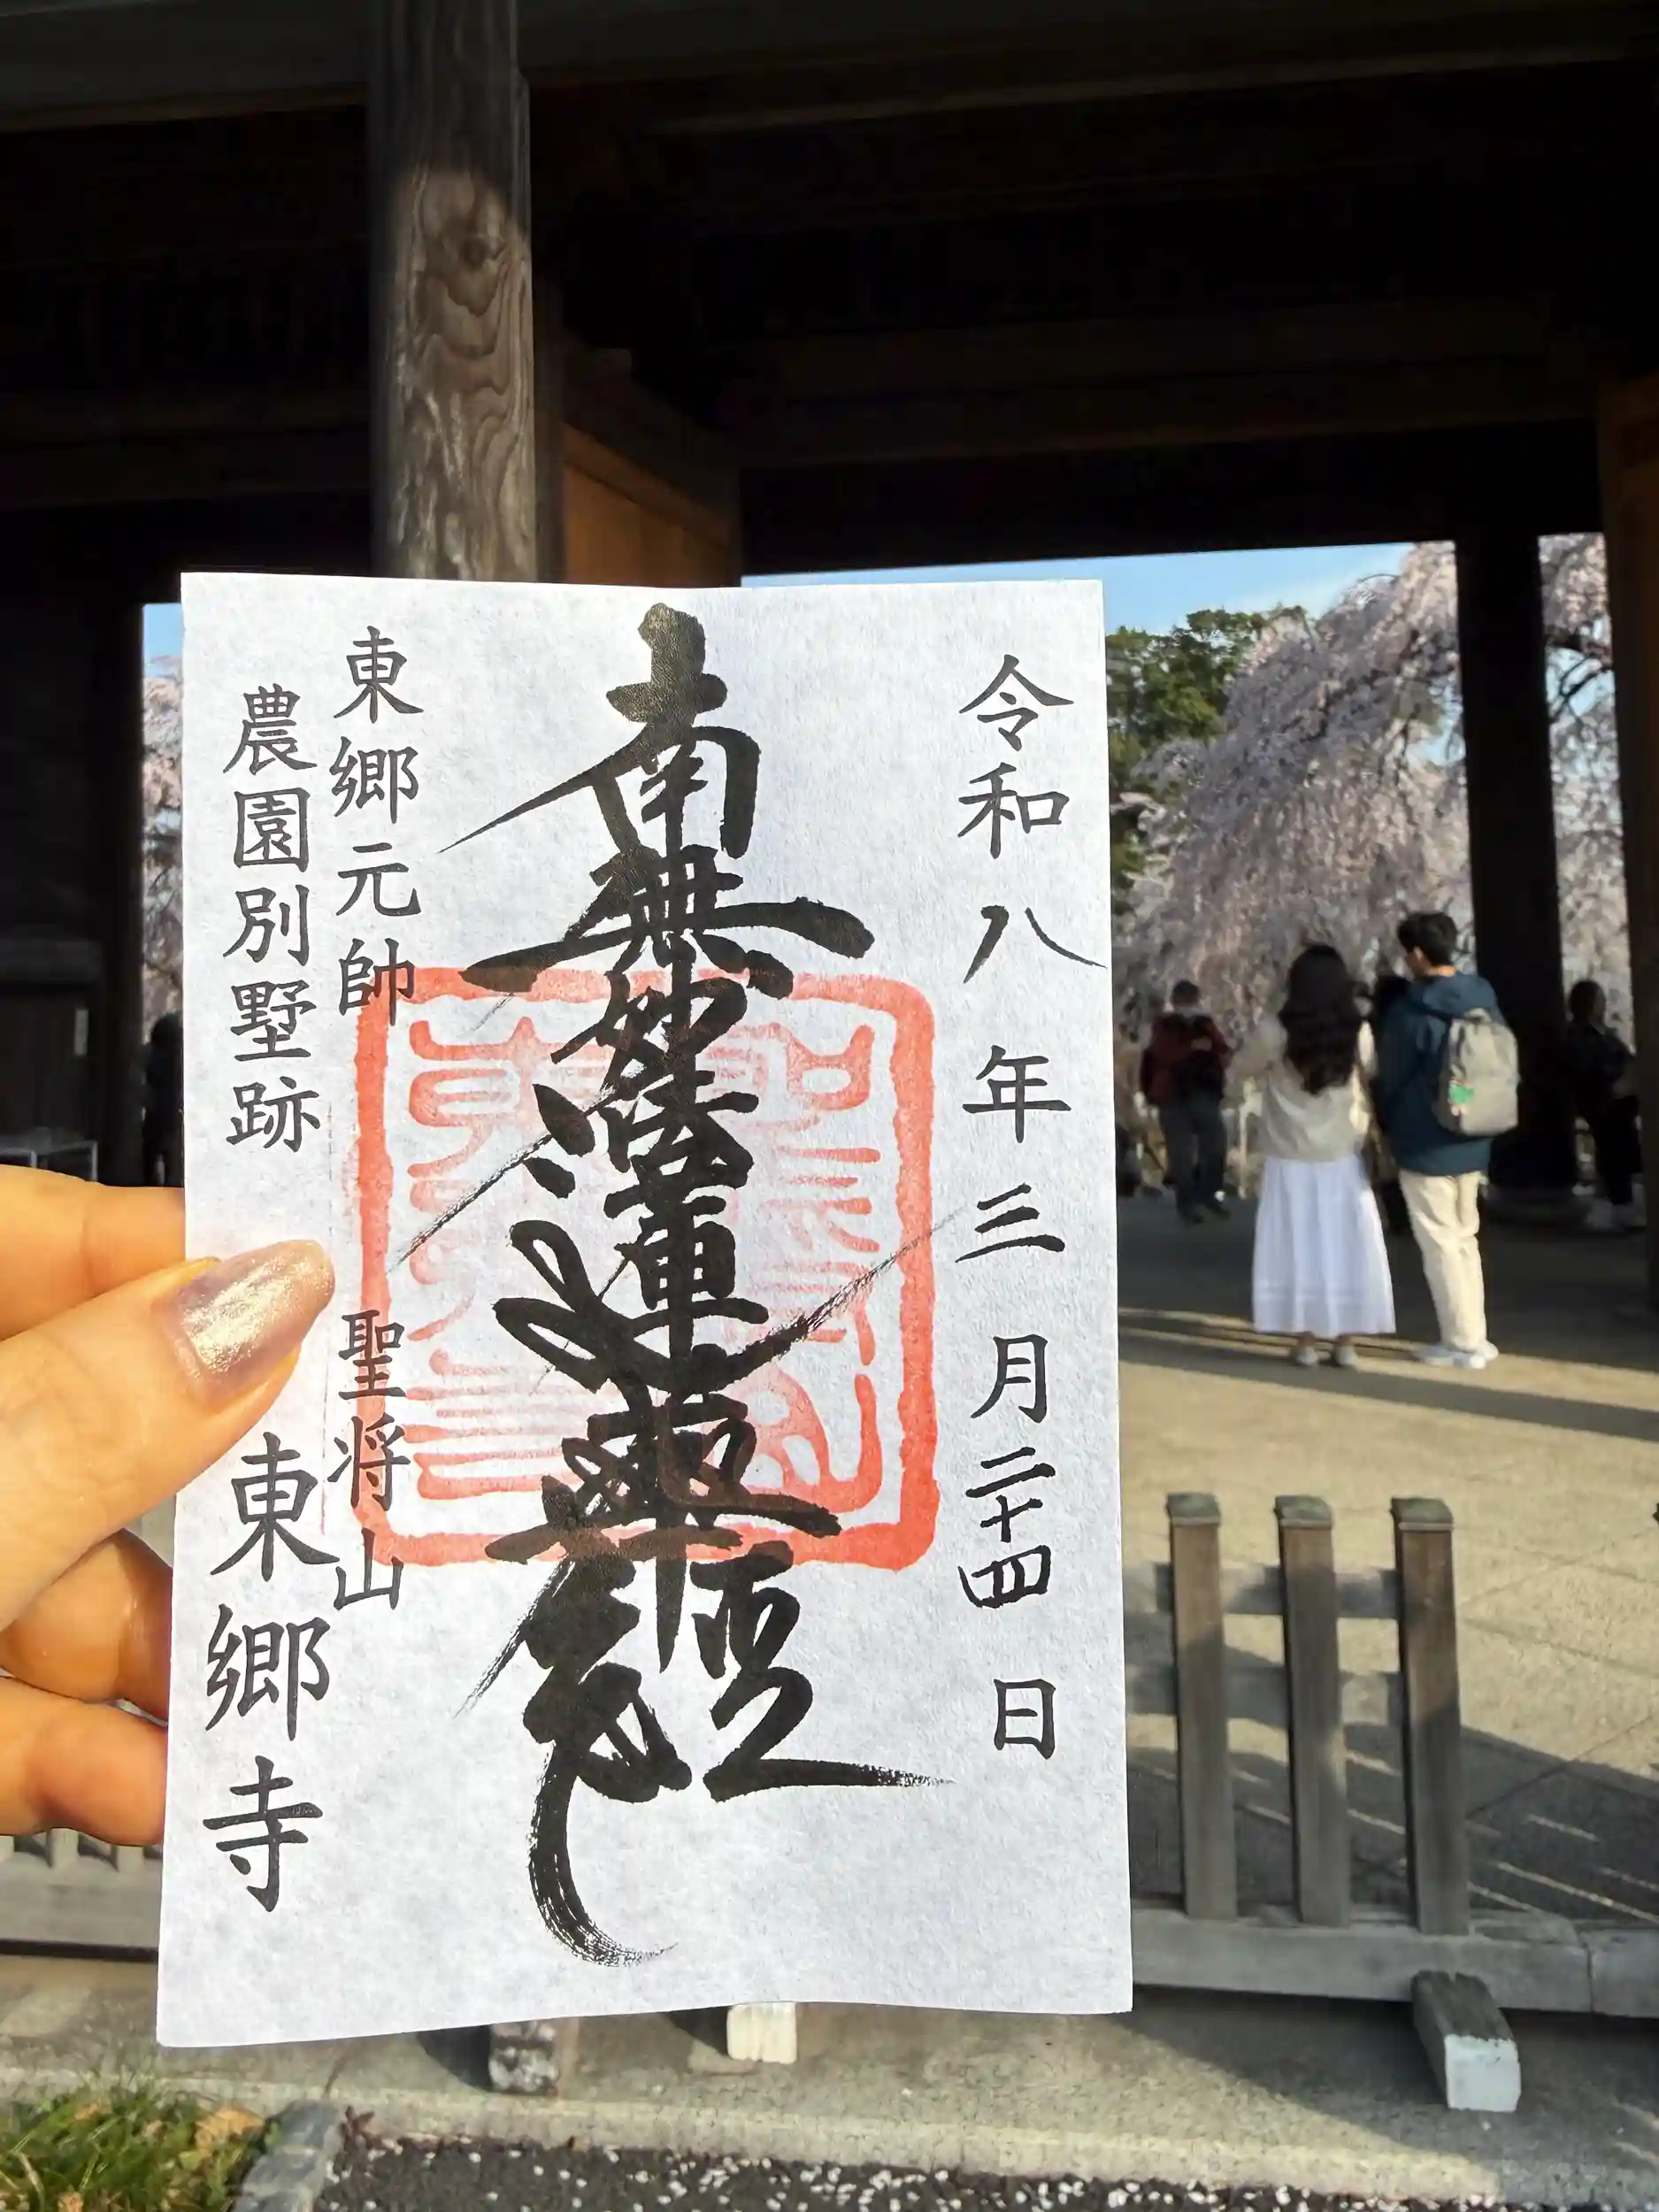 令和八年三月二十四日
南無妙法蓮華経
東郷元帥
農園別墅跡
聖将山
東郷寺